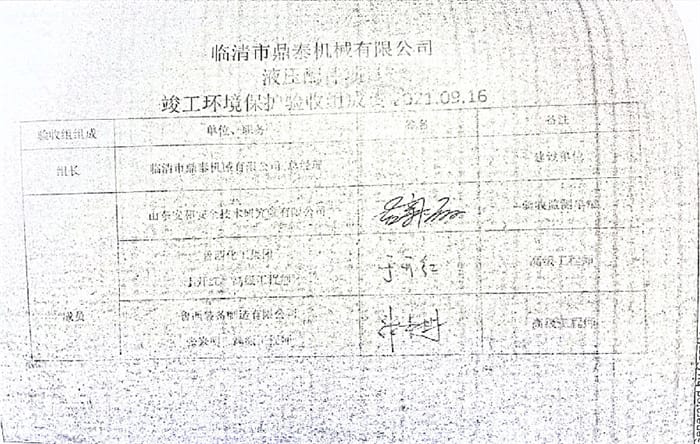 临清市鼎泰机械有限公司
液压配件项目
竣工环境保护验收组成员 2021.09.16
验收组组成 单位、职务 签名 备注
组长 临清市鼎泰机械有限公司 总经理 建设单位
山东安和安全技术研究院有限公司 验收监测单位
鲁西化工集团
高级工程师 于开红 高级工程师
成员 鲁西装备制造有限公司
高级工程师 高级工程师